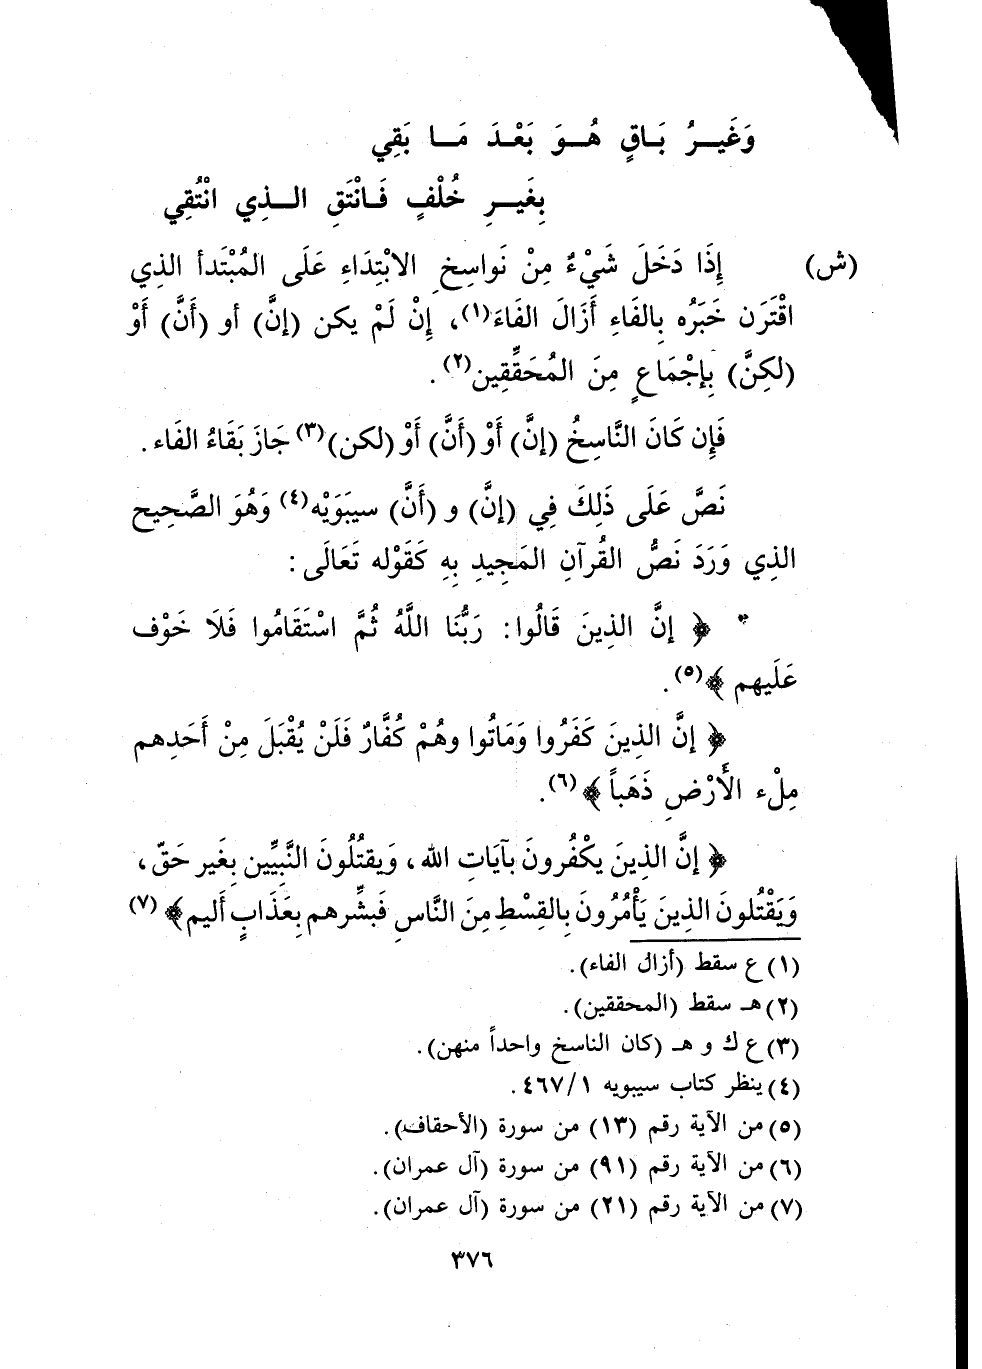 وَغَيـــرُ بَــاقٍ هُـــوَ بَعْــدَ مَــا بَقِي
بِغَيـــرِ خُلْفٍ فَــانْتَقِ الـــذِي انْتُقِي
(ش) إِذَا دَخَلَ شَيْءٌ مِنْ نَواسِخِ الابْتِدَاءِ عَلَى المُبْتَدأ الذِي
اقْتَرَن خَبَرُه بِالفَاءِ أَزَالَ الفَاءَ(١)، إِنْ لَمْ يكن (إنَّ) أو (أَنَّ) أَوْ
(لكِنَّ) بِإجْمَاعٍ مِنَ المُحَقِّقِين(٢).
فَإِن كَانَ النَّاسِخُ (إنَّ) أَوْ (أَنَّ) أَوْ (لكن)(٣) جَازَ بَقَاءُ الفَاء.
نَصَّ عَلَى ذَلِكَ فِي (إنَّ) و (أَنَّ) سيبَوَيْه(٤) وَهُوَ الصَّحِيح
الذِي وَرَدَ نَصُّ القُرآنِ المَجِيدِ بِهِ كَقَوْله تَعَالَى:
* ﴿ إنَّ الذِينَ قَالُوا: رَبُّنَا اللَّهُ ثُمَّ اسْتَقَامُوا فَلَا خَوْف
عَلَيهم ﴾(٥).
﴿ إنَّ الذِينَ كَفَرُوا وَمَاتُوا وهُمْ كُفَّارٌ فَلَنْ يُقْبَلَ مِنْ أَحَدِهم
مِلْء الأَرْضِ ذَهَباً ﴾(٦).
﴿ إنَّ الذِينَ يكْفُرونَ بآيَاتِ الله، وَيقتُلُونَ النَّبِيِّين بِغَير حَقّ،
وَيَقْتُلونَ الذِينَ يَأْمُرُونَ بِالقِسْطِ مِنَ النَّاسِ فَبشِّرهم بِعَذَابٍ أَليم ﴾(٧)
(١) ع سقط (أزال الفاء).
(٢) هـ سقط (المحققين).
(٣) ع ك و هـ (كان الناسخ واحداً منهن).
(٤) ينظر كتاب سيبويه ٤٦٧/١.
(٥) من الآية رقم (١٣) من سورة (الأحقاف).
(٦) من الآية رقم (٩١) من سورة (آل عمران).
(٧) من الآية رقم (٢١) من سورة (آل عمران).
٣٧٦